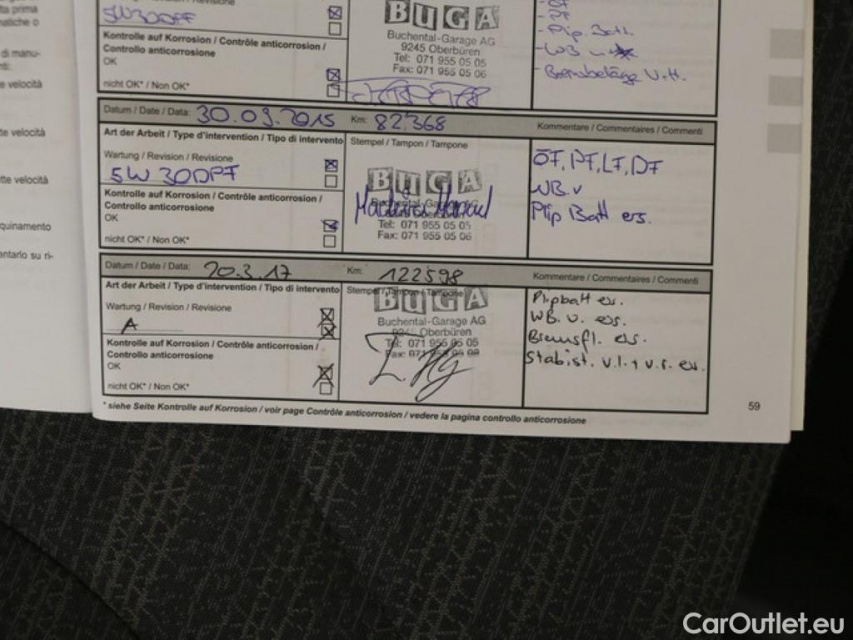 lta prima
matiche o
di manu-
nti:
te velocità
te velocità
tte velocità
quinamento
entario su ri-
5W30DPF
Kontrolle auf Korrosion / Contrôle anticorrosion /
Controllo anticorrosione
OK
nicht OK* / Non OK*
BUGA
Buchental-Garage AG
9245 Oberbüren
Tel: 071 955 05 05
Fax: 071 955 05 06
- Pip. Batt.
- WB
- Bremsbeläge V.H.
Datum / Date / Data: 30.03.2015 Km: 82368 Kommentare / Commentaires / Commenti
Art der Arbeit / Type d'intervention / Tipo di intervento
Wartung / Revision / Revisione
5W30DPF
Kontrolle auf Korrosion / Contrôle anticorrosion /
Controllo anticorrosione
OK
nicht OK* / Non OK*
Stempel / Tampon / Tampone
BUGA
Buchental-Garage AG
Tel: 071 955 05 05
Fax: 071 955 05 06
ÖF, PF, LF, DF
WB. v
Plip Batt ers.
Datum / Date / Data: 20.3.17 Km: 122598 Kommentare / Commentaires / Commenti
Art der Arbeit / Type d'intervention / Tipo di intervento
Wartung / Revision / Revisione
A
Kontrolle auf Korrosion / Contrôle anticorrosion /
Controllo anticorrosione
OK
nicht OK* / Non OK*
Stempel / Tampon / Tampone
BUGA
Buchental-Garage AG
9245 Oberbüren
Tel: 071 955 05 05
Fax: 071 955 05 06
Plipbatt ers.
WB. v. ers.
Bremsfl. ers.
Stabist. v.l. + v.r. ers.
* siehe Seite Kontrolle auf Korrosion / voir page Contrôle anticorrosion / vedere la pagina controllo anticorrosione
59
CarOutlet.eu